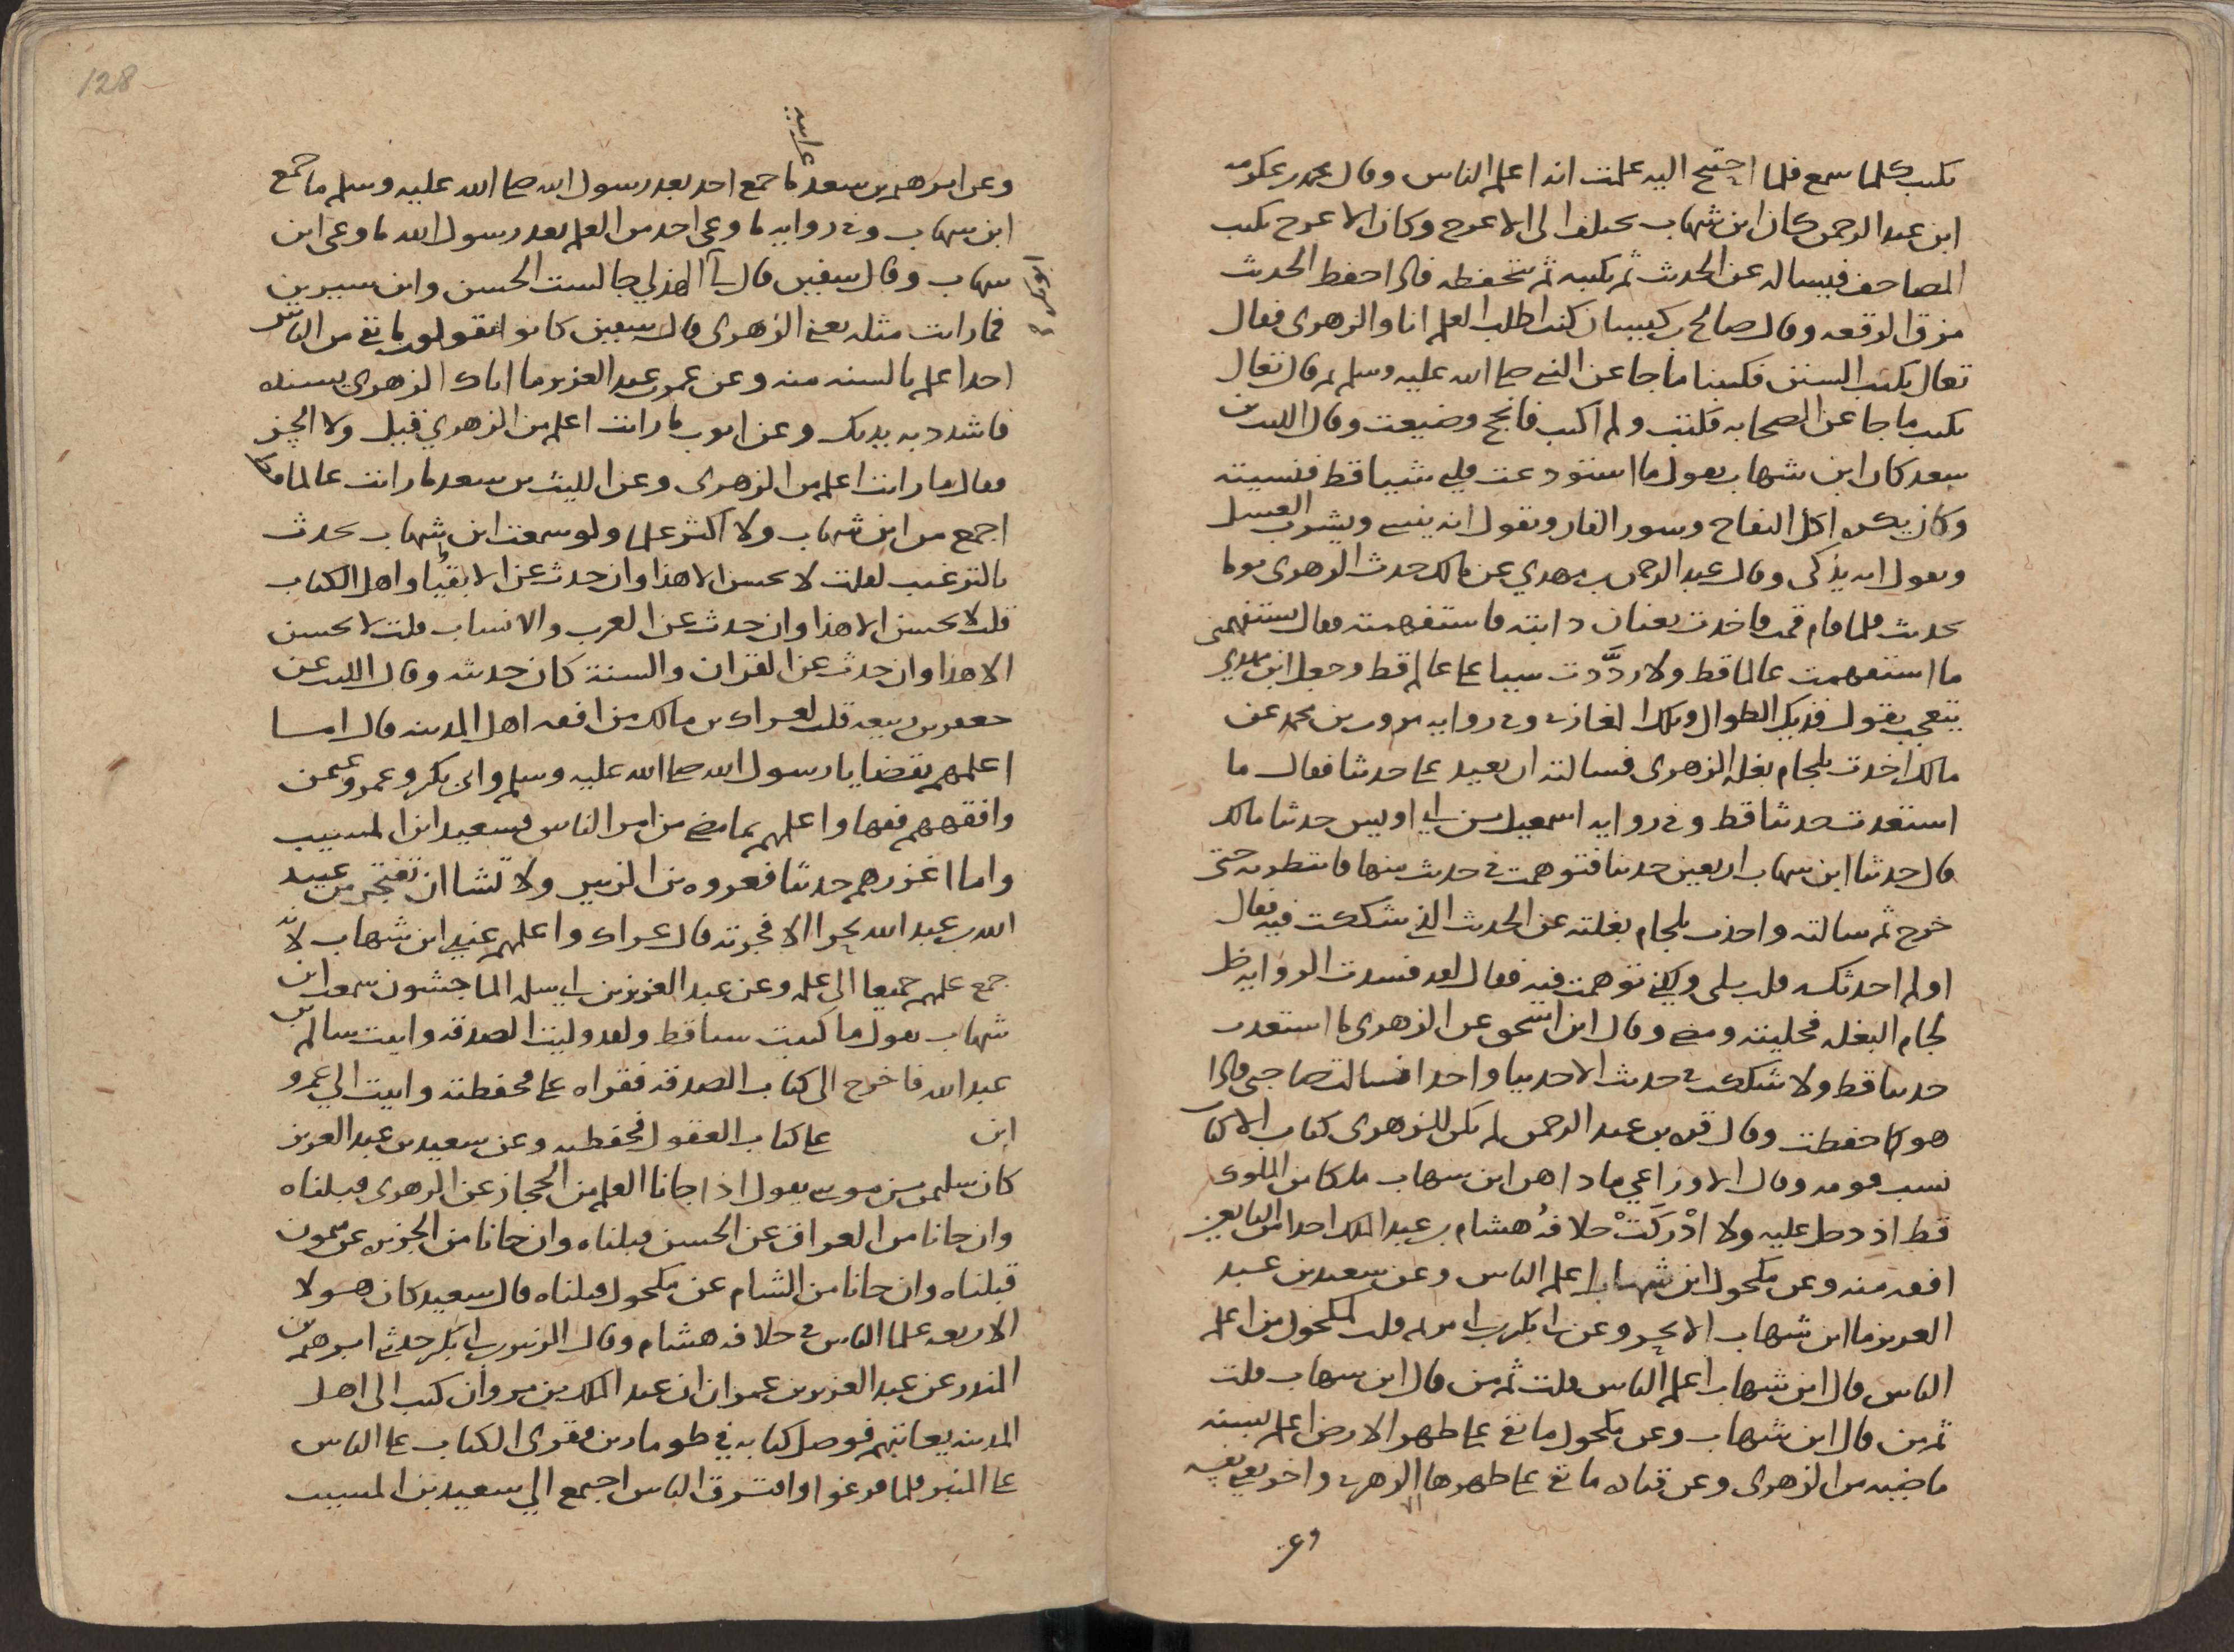 يكتب كلما سمع فلما احتيج اليه علمت انه اعلم الناس وقال محمد بن عكرمه
ابن عبد الرحمن كان ابن شهاب يختلف الى الاعرج وكان الاعرج يكتب
المصاحف فيساله عن الحديث ثم يكتبه ثم يتحفظه فاذا احفظ الحديث
مزق الرقعه وقال صالح بن كيسان كنت اطلب العلم انا والزهري فقال
تعال نكتب السنن فكتبنا ما جا عن النبي صلى الله عليه وسلم ثم قال تعال
نكتب ما جا عن الصحابه فكتب ولم اكتب فانجح وضيعت وقال الليث بن
سعد كان ابن شهاب يقول ما استودعت قلبي شيا قط فنسيته
وكان يكره اكل التفاح وسور الفار ويقول انه ينسي ويشرب العسل
ويقول انه يذكى وقال عبد الرحمن بن مهدي عن مالك حدث الزهري يوما
بحديث فلما قام قمت فاخذت بعنان دابته فاستفهمته فقال تستفهمني
ما استفهمت عالما قط ولا ردَّدت شيا على عالم قط وجعل ابن مهدي
يتعجب يقول فذيك الطوال وتلك المغازي وفي روايه مروان بن محمد عن
مالك اخذت بلجام بغله الزهري فسالته ان يعيد على حديثا فقال ما
استعدت حديثا قط وفي روايه اسمعيل بن ابي اويس حدثنا مالك
قال حدثنا ابن شهاب اربعين حديثا فتوهمت في حديث منها فانتظرته حتى
خرج ثم سالته واخذت بلجام بغلته عن الحديث الذي شككت فيه فقال
اولم احدثكه قلت بلى ولكني توهمت فيه فقال لقد فسدت الروايه خل
لجام البغله فخليته ومضى وقال ابن اسحق عن الزهري ما استعدت
حديثا قط ولا شككت في حديث الا حديثا واحدا فسالت صاحبي فاذا
هو كما حفظت وقال قره بن عبد الرحمن لم يكن للزهري كتاب الا كتاب
نسب قومه وقال الاوزاعي ما داهن ابن شهاب ملكا من الملوك
قط اذ دخل عليه ولا ادْرَكَتْ خلافةُ هشام بن عبد الملك احدا من التابعين
افقه منه وعن مكحول ابن شهاب اعلم الناس وعن سعيد بن عبد
العزيز ما ابن شهاب الا بحر وعن ابي بكر بن ابي مريم قلت لمكحول من اعلم
الناس قال ابن شهاب اعلم الناس قلت ثم من قال ابن شهاب قلت
ثم من قال ابن شهاب وعن مكحول ما بقي على ظهر الارض اعلم بسنه
ماضيه من الزهري وعن قتاده ما بقي على ظهرها الا الزهري واخر يعني نفسه
وعن
128
وعن ابرهيم بن سعد عن ابيه ما جمع احد بعد رسول الله صلى الله عليه وسلم ما جمع
ابن شهاب وفي روايه ما وعى احد من العلم بعد رسول الله ما وعى ابن
شهاب وقال سفين قال لي ابو بكر الهذلي جالست الحسن وابن سيرين
فما رايت مثله يعني الزهري قال سفين كانوا يقولون ما بقي من الناس
احد اعلم بالسنه منه وعن عمر بن عبد العزيز ما اتاك الزهري بسنده
فاشدد به يديك وعن ايوب ما رايت اعلم من الزهري فقيل ولا الحسن
فقال ما رايت اعلم من الزهري وعن الليث بن سعد ما رايت عالما قط
اجمع من ابن شهاب ولا اكثر علما ولو سمعت ابن شهاب يحدث
بالترغيب لقلت لا يحسن الا هذا وان حدث عن الانبيا واهل الكتاب
قلت لا يحسن الا هذا وان حدث عن العرب والانساب قلت لا يحسن
الا هذا وان حدث عن القران والسنة كان حديثه وقال الليث عن
جعفر بن ربيعه قلت لعراك بن مالك من افقه اهل المدينه قال اما
اعلمهم بقضايا رسول الله صلى الله عليه وسلم وابي بكر وعمر وعثمن
وافقههم فقها واعلمهم بما مضى من امر الناس فسعيد ابن المسيب
واما اغزرهم حديثا فعروه بن الزبير ولا تشا ان تفتجر من عبيد
الله بن عبد الله بحرا الا فجرته قال عراك واعلمهم عندي ابن شهاب لانه
جمع علمهم جميعا الى علمه وعن عبد العزيز بن ابي سلمه الماجشون سمعت ابن
شهاب يقول ما كتبت شيا قط ولقد وليت الصدقه واتيت سالم بن
عبد الله فاخرج الى كتاب الصدقه فقراه على فحفظته واتيت الي عمرو
ابن على كتاب العقول فحفظته وعن سعيد بن عبد العزيز
كان سليمن بن موسى يقول اذا جانا العلم من الحجاز عن الزهري قبلناه
وان جانا من العراق عن الحسن قبلناه وان جانا من الجزيره عن ميمون
قبلناه وان جانا من الشام عن مكحول قبلناه قال سعيد كان هولا
الاربعه علما الناس في خلافه هشام وقال الزبير بن ابي بكر حدثني ابرهيم بن
المنذر عن عبد العزيز بن عمران ان عبد الملك بن مروان كتب الى اهل
المدينه يعاتبهم فوصل كتابه في طومارين فقري الكتاب على الناس
على المنبر فلما فرغوا وافترق الناس اجتمع الي سعيد بن المسيب